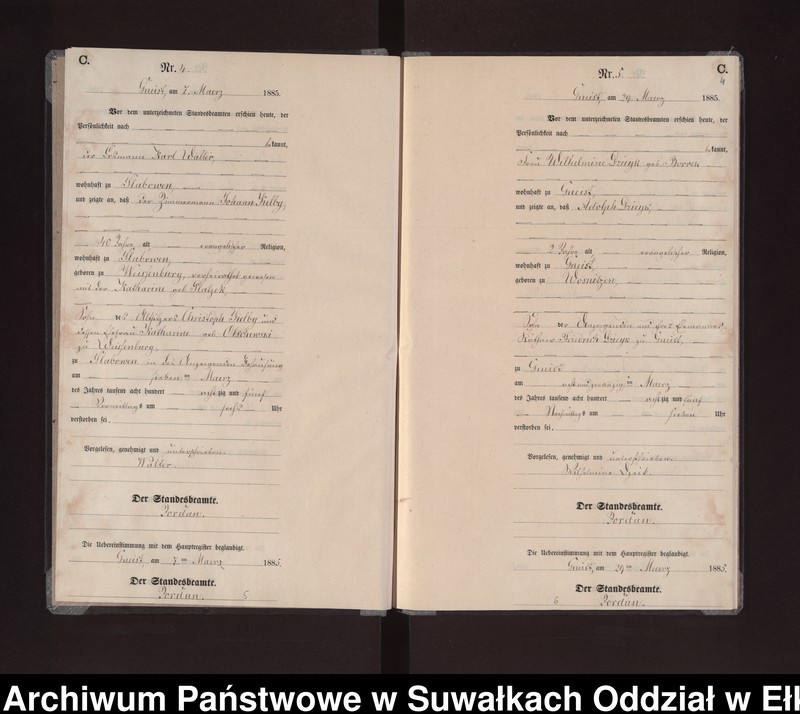 C.
Nr. 4.
Gneist, am 7. Maerz 1885.
Vor dem unterzeichneten Standesbeamten erschien heute, der
Persönlichkeit nach
bekannt,
der Losmann Karl Waller,
wohnhaft zu Slabowen,
und zeigte an, daß der Zimmermann Johann
40 Jahre alt evangelischer Religion,
wohnhaft zu Slabowen,
geboren zu Weissenburg, verheirathet gewesen
mit der Katharine geb.
Sohn des Christoph und
dessen Ehefrau Katharine geb.
zu Weissenburg,
zu Slabowen in des Anzeigenden Behausung
am sieben ten Maerz
des Jahres tausend acht hundert achtzig und fünf
Vormittags um sechs Uhr
verstorben sei.
Vorgelesen, genehmigt und unterschrieben.
Waller.
Der Standesbeamte.
Jordan.
Die Uebereinstimmung mit dem Hauptregister beglaubigt.
Gneist, am 7 ten Maerz 1885.
Der Standesbeamte.
Jordan.
5
C.
4
Nr. 5.
Gneist, am 29. Maerz 1885.
Vor dem unterzeichneten Standesbeamten erschien heute, der
Persönlichkeit nach
bekannt,
Frau Wilhelmine geb.
wohnhaft zu Gneist,
und zeigte an, daß Adolph
2 Jahre alt evangelischer Religion,
wohnhaft zu Gneist,
geboren zu
Sohn der Anzeigenden und ihres Ehemannes
Friedrich zu Gneist,
zu Gneist
am acht und zwanzig ten Maerz
des Jahres tausend acht hundert achtzig und fünf
Nachmittags um sieben Uhr
verstorben sei.
Vorgelesen, genehmigt und unterschrieben.
Wilhelmine
Der Standesbeamte.
Jordan.
Die Uebereinstimmung mit dem Hauptregister beglaubigt.
Gneist, am 29 ten Maerz 1885.
Der Standesbeamte.
6 Jordan.
Archiwum Państwowe w Suwałkach Oddział w Ełk